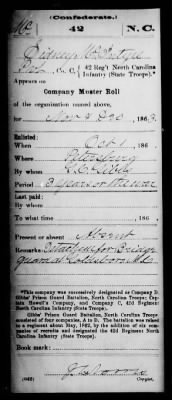 (Confederate.)
Mc 42 N.C.
Sidney McIntyre
Pvt., Co. C, 42 Reg't North Carolina
Infantry (State Troops).*
Appears on
Company Muster Roll
of the organization named above,
for Nov & Dec, 186
Enlisted:
When Oct 1, 186
Where Petersburg
By whom
Period 3 years or the war
Last paid:
By whom
To what time , 186 .
Present or absent Absent
Remarks: Detached for Bridge
guard at Goldsboro N.C.
*This company was successively designated or Company D,
Gibbs' Prison Guard Battalion, North Carolina Troops; Cap-
tain Howell's Company, and Company C, 42d Regiment
North Carolina Infantry (State Troops).
Gibbs' Prison Guard Battalion, North Carolina Troops
consisted of four companies, A to D. The battalion was raised
to a regiment about May, 1862, by the addition of six com-
panies of recruits and designated the 42d Regiment North
Carolina Infantry (State Troops).
Book mark:
(642) Copyist.